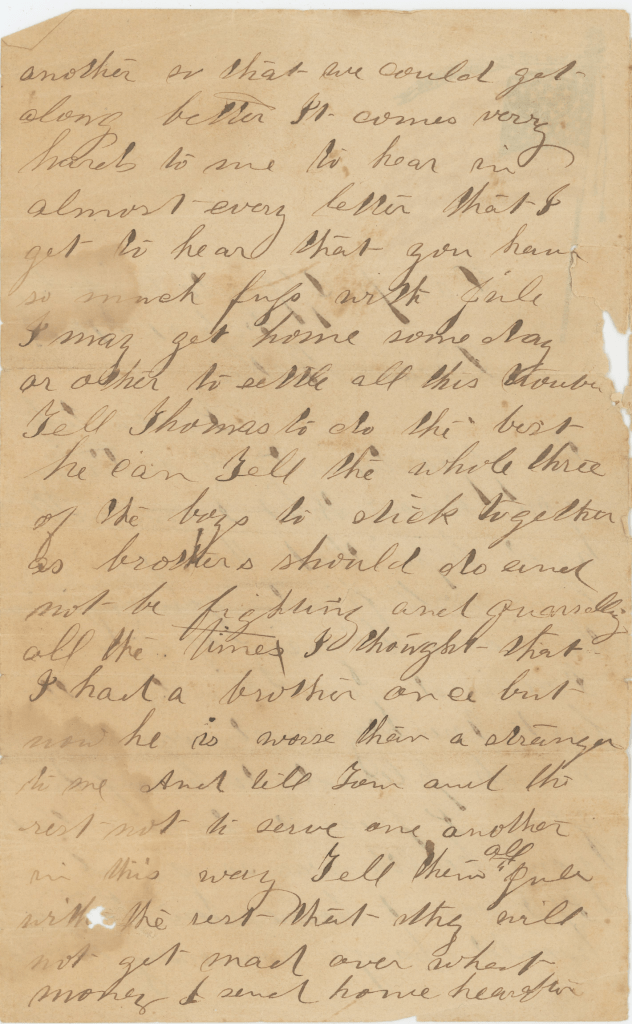 another so that we could get
along better It comes verry
hard to me to hear in
almost every letter that I
get to hear that you have
so much fuss with Jule
I may get home some day
or other to settle all this trouble
Tell Thomas to do the best
he can Tell the whole three
of the boys to stick together
as brothers should do and
not be fighting and quarrelling
all the times I thought that
I had a brother once but
now he is worse than a stranger
to me And till Tom and the
rest not to serve one another
in this way Tell them all Jule
with the rest that they will
not get mad over what
money I send home hearafter